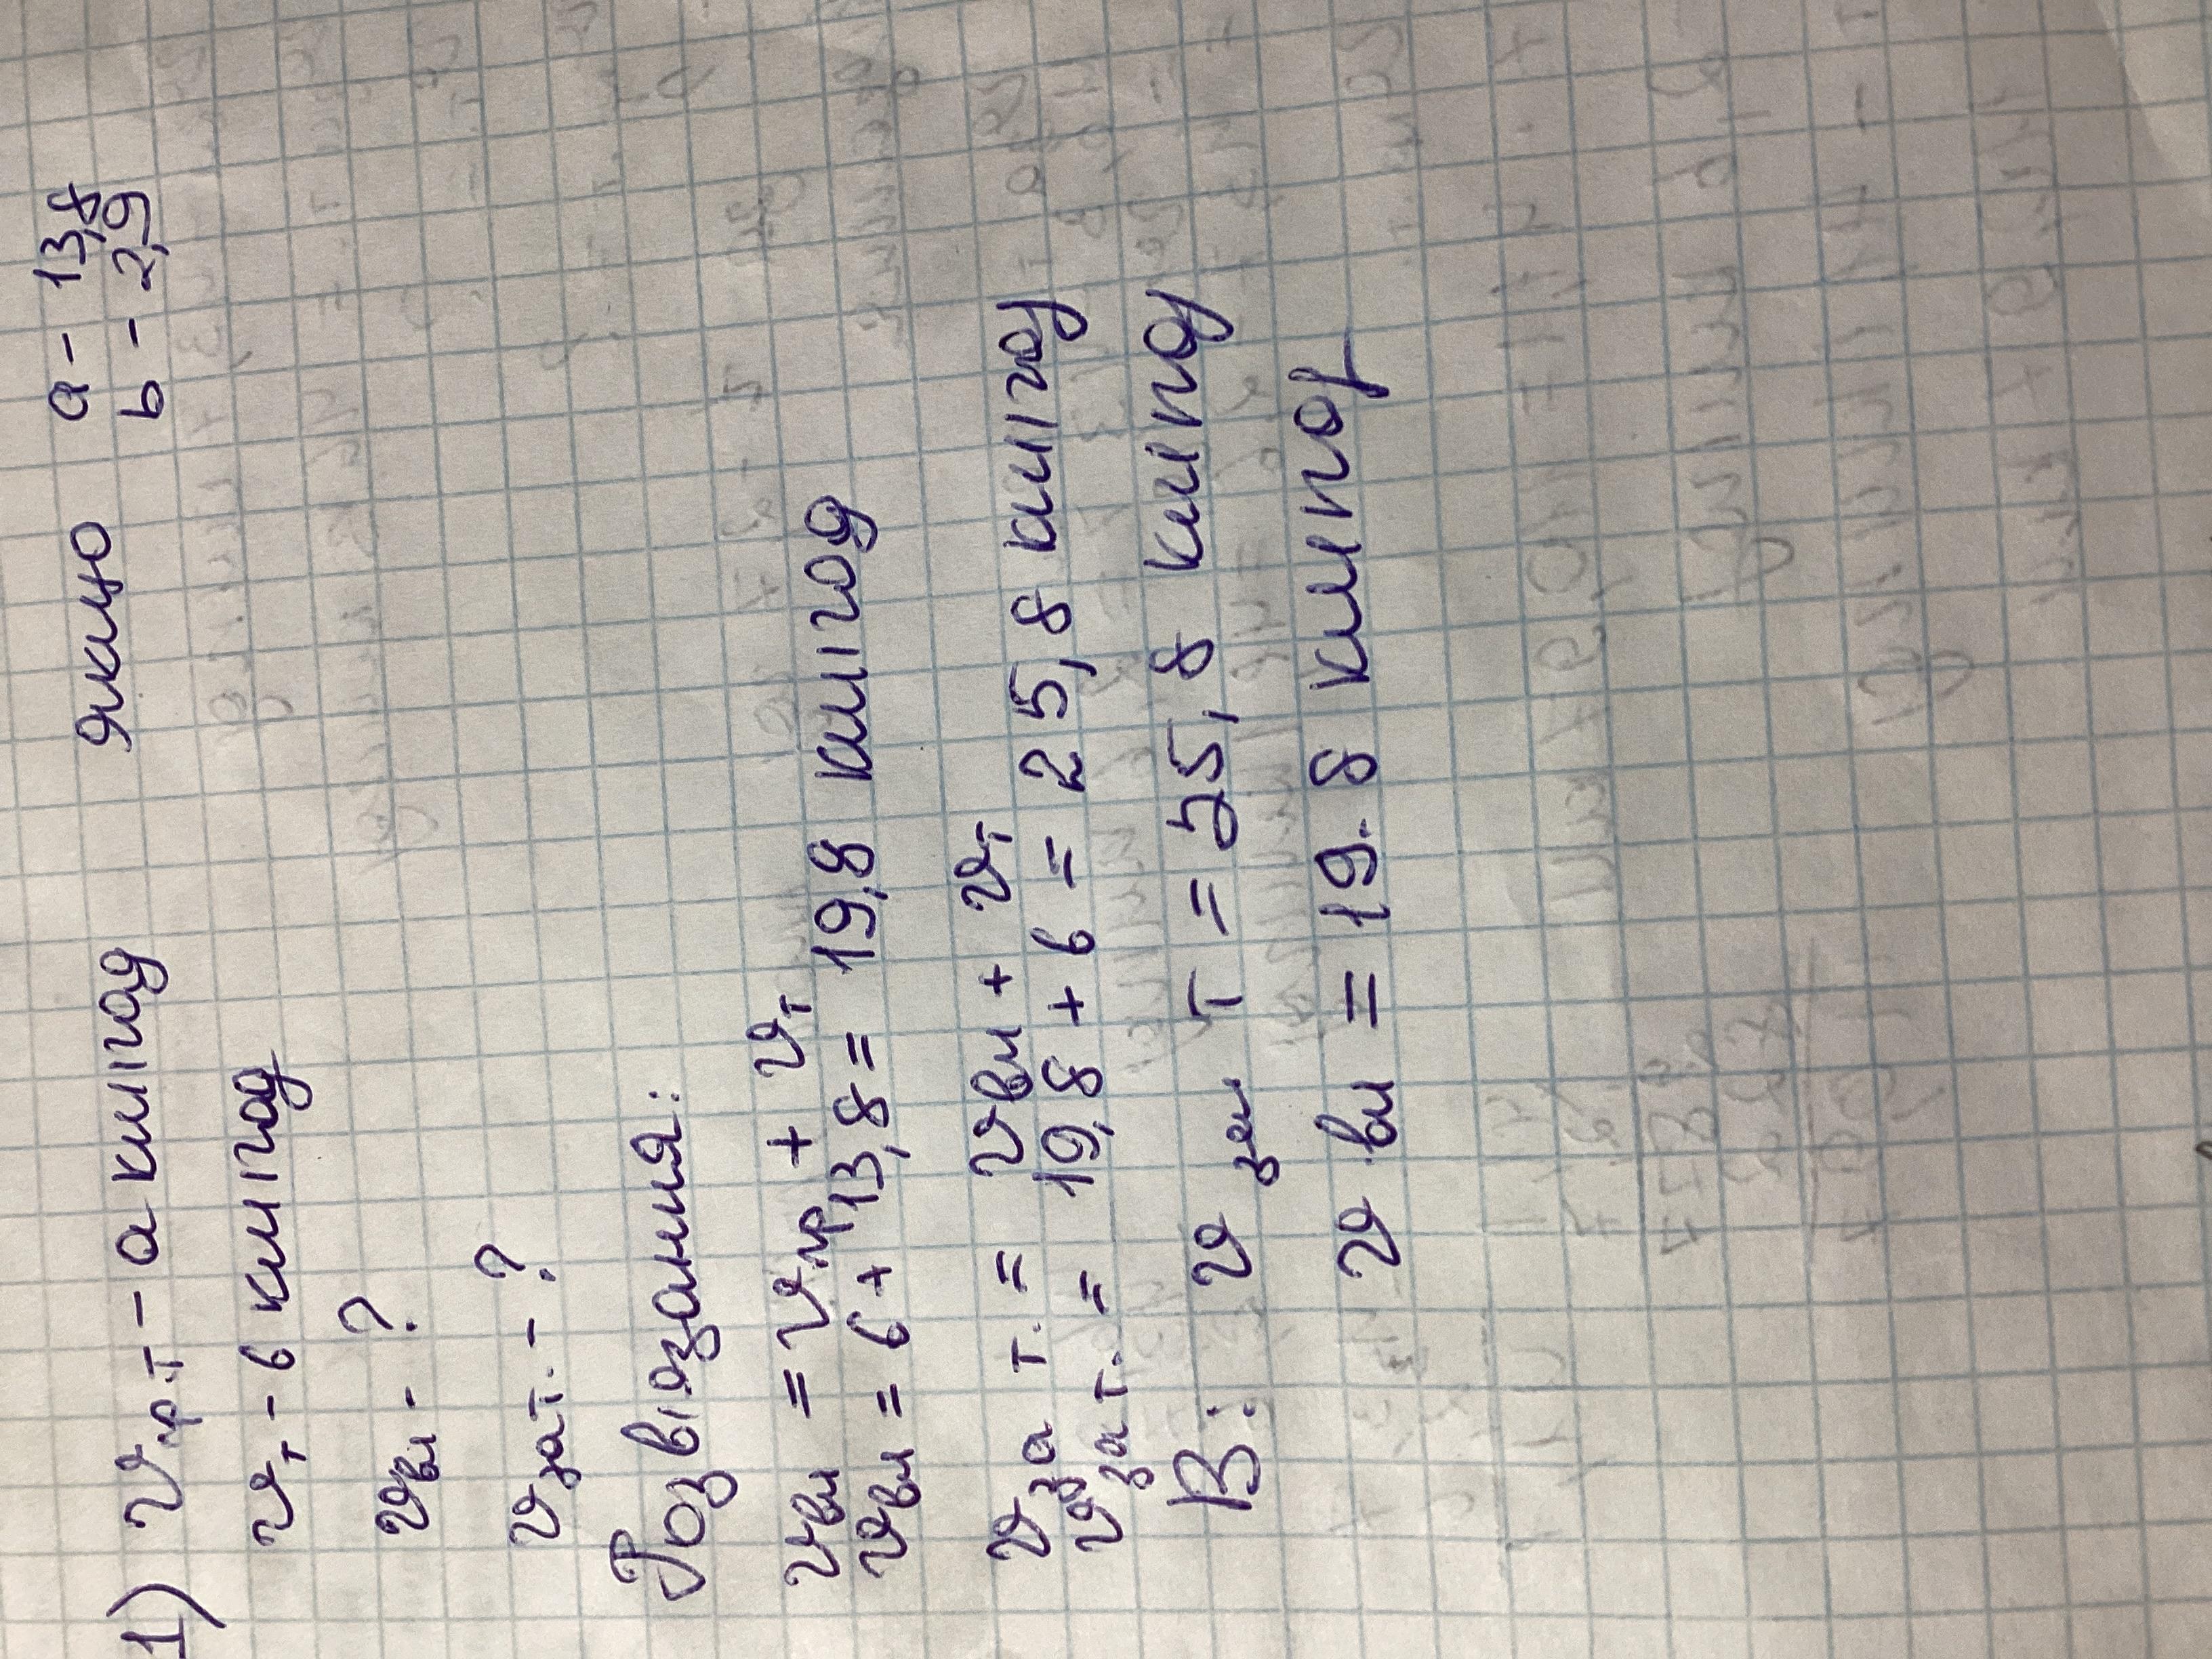 1) v пр.т - a км/год якщо a - 13,8
vт - в км/год b - 2,9
vвл - ?
v заТ. - ?
Розв'язання:
vвл = v пр + vт
vвл = 6 + 13,8 = 19,8 км/год
v за т. = vвл + vт
v за т. = 19,8 + 6 = 25,8 км/год
В: v зa т = 25,8 км/год
v вл = 19.8 км/год